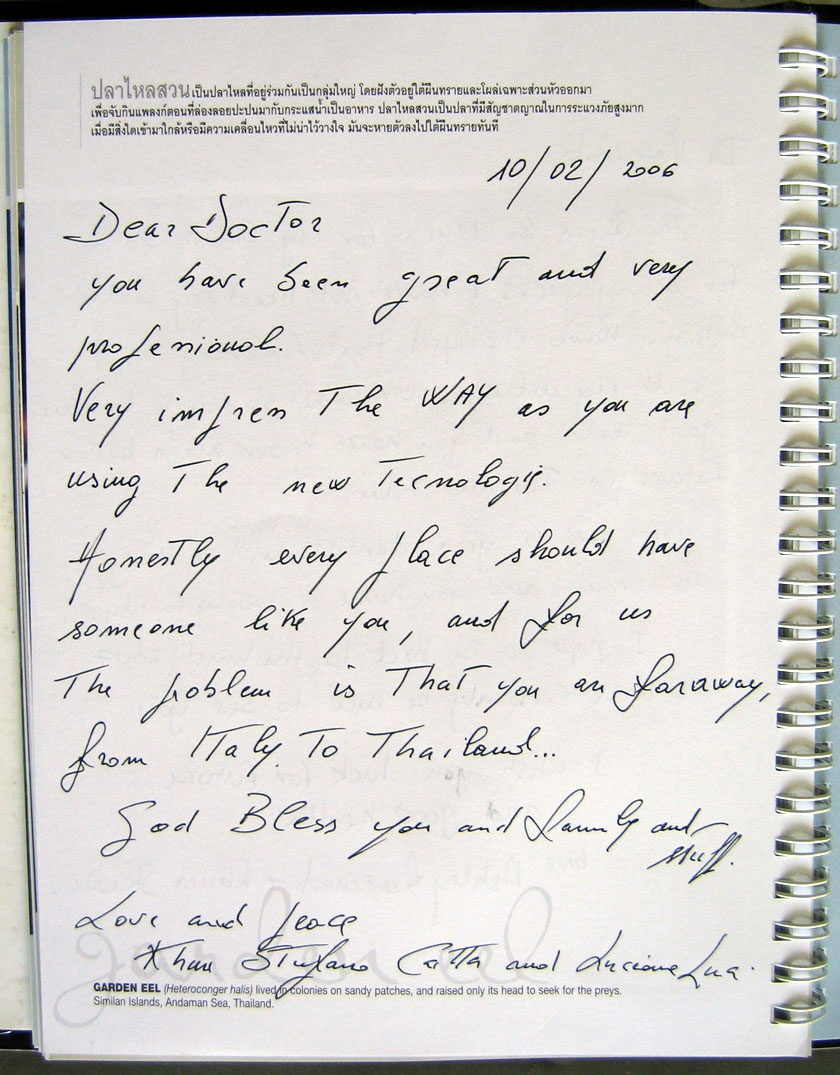 ปลาไหลสวนเป็นปลาไหลที่อยู่ร่วมกันเป็นกลุ่มใหญ่ โดยฝังตัวอยู่ใต้ผืนทรายและโผล่เฉพาะส่วนหัวออกมา
เพื่อจับกินแพลงก์ตอนที่ล่องลอยปะปนมากับกระแสน้ำเป็นอาหาร ปลาไหลสวนเป็นปลาที่มีสัญชาตญาณในการระแวงภัยสูงมาก
เมื่อมีสิ่งใดเข้ามาใกล้หรือมีความเคลื่อนไหวที่ไม่น่าไว้วางใจ มันจะหายตัวลงไปใต้ผืนทรายทันที
10/02/2006
Dear Doctor
you have been great and very
professional.
Very impress The WAY as you are
using The new Tecnology.
Honestly every place should have
someone like you, and for us
The problem is That you are faraway,
from ITaly To Thailand...
God Bless you and family and
stuff.
Love and peace
Khun Stefano and
GARDEN EEL (Heteroconger halis) lived in colonies on sandy patches, and raised only its head to seek for the preys.
Similan Islands, Andaman Sea, Thailand.